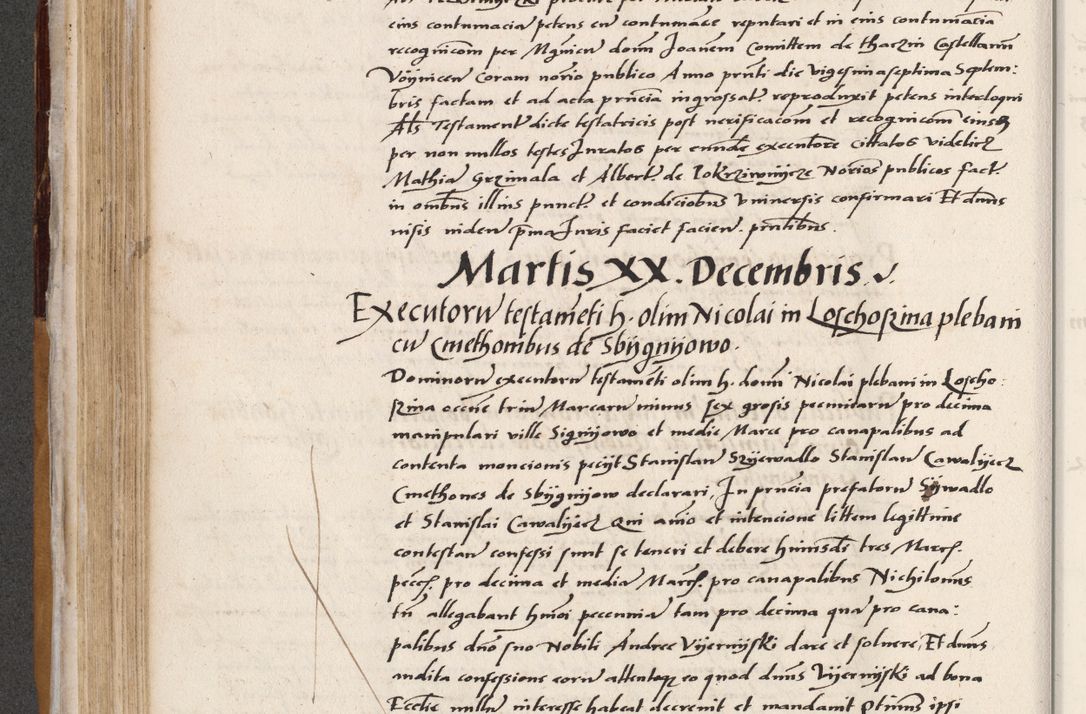 eius contumacia petens eu contumace reputari et in eius contumacia
recognicom per Mgnicu donm Joanem Comittem de tharzin Castellanu
Voÿnicen Coram norio publico Anno prnti die vigesimaseptima Septem:
bris factam et ad acta prncia ingrossat reproduxit petens interloqui
Als Testament dicte testatricis post verificacom et recognicom eiusq
per non nullos testes Juratos per eunde executore cittatos videlicz
Mathia Grzimala et Albert de Pokrziwnÿcze Norios publicos fact
in ombus illius punct et condiciobus vniuersis confirmari Et dnus
visis videu pma Juris faciet facien. prntibus
Martis XX. Decembris.
Executoru testameti h. olim Nicolai in Loschoszina plebani
cu Cmethonibus de Sbÿgnÿowo.
Dominoru executoru testameti olim h. domi Nicolai plebani in Loscho:
szina occne triu Marcaru minus sex grosis pecuniaru pro decima
manipulari ville Signÿowo et medie Marce pro canapalibus ad
contenta moncionis pecÿt Stanislau Szÿewadlo Stanislau Cawalÿecz
Cmethones de Sbÿgnÿow declarari, In prncia prefatoru Sÿwadlo
et Stanislai Cawalÿecz Qui anio et intencione littem legittime
contestan confessi sunt se teneri et debere huiusdi tres Marcs.
pecs. pro decima et media Marcs. pro canapalibus Nichilomus
tn allegabant hmoi pecunia tam pro decima qua pro cana:
palibus dno suo Nobili Andree Vÿernÿski dare et soluere, Et dnus
audita confessione eoru attentoq eo quod dnus Vÿernÿski ad bona
Ecclie nullu interesse habeat decreuit et mandauit Ottinus ipsi